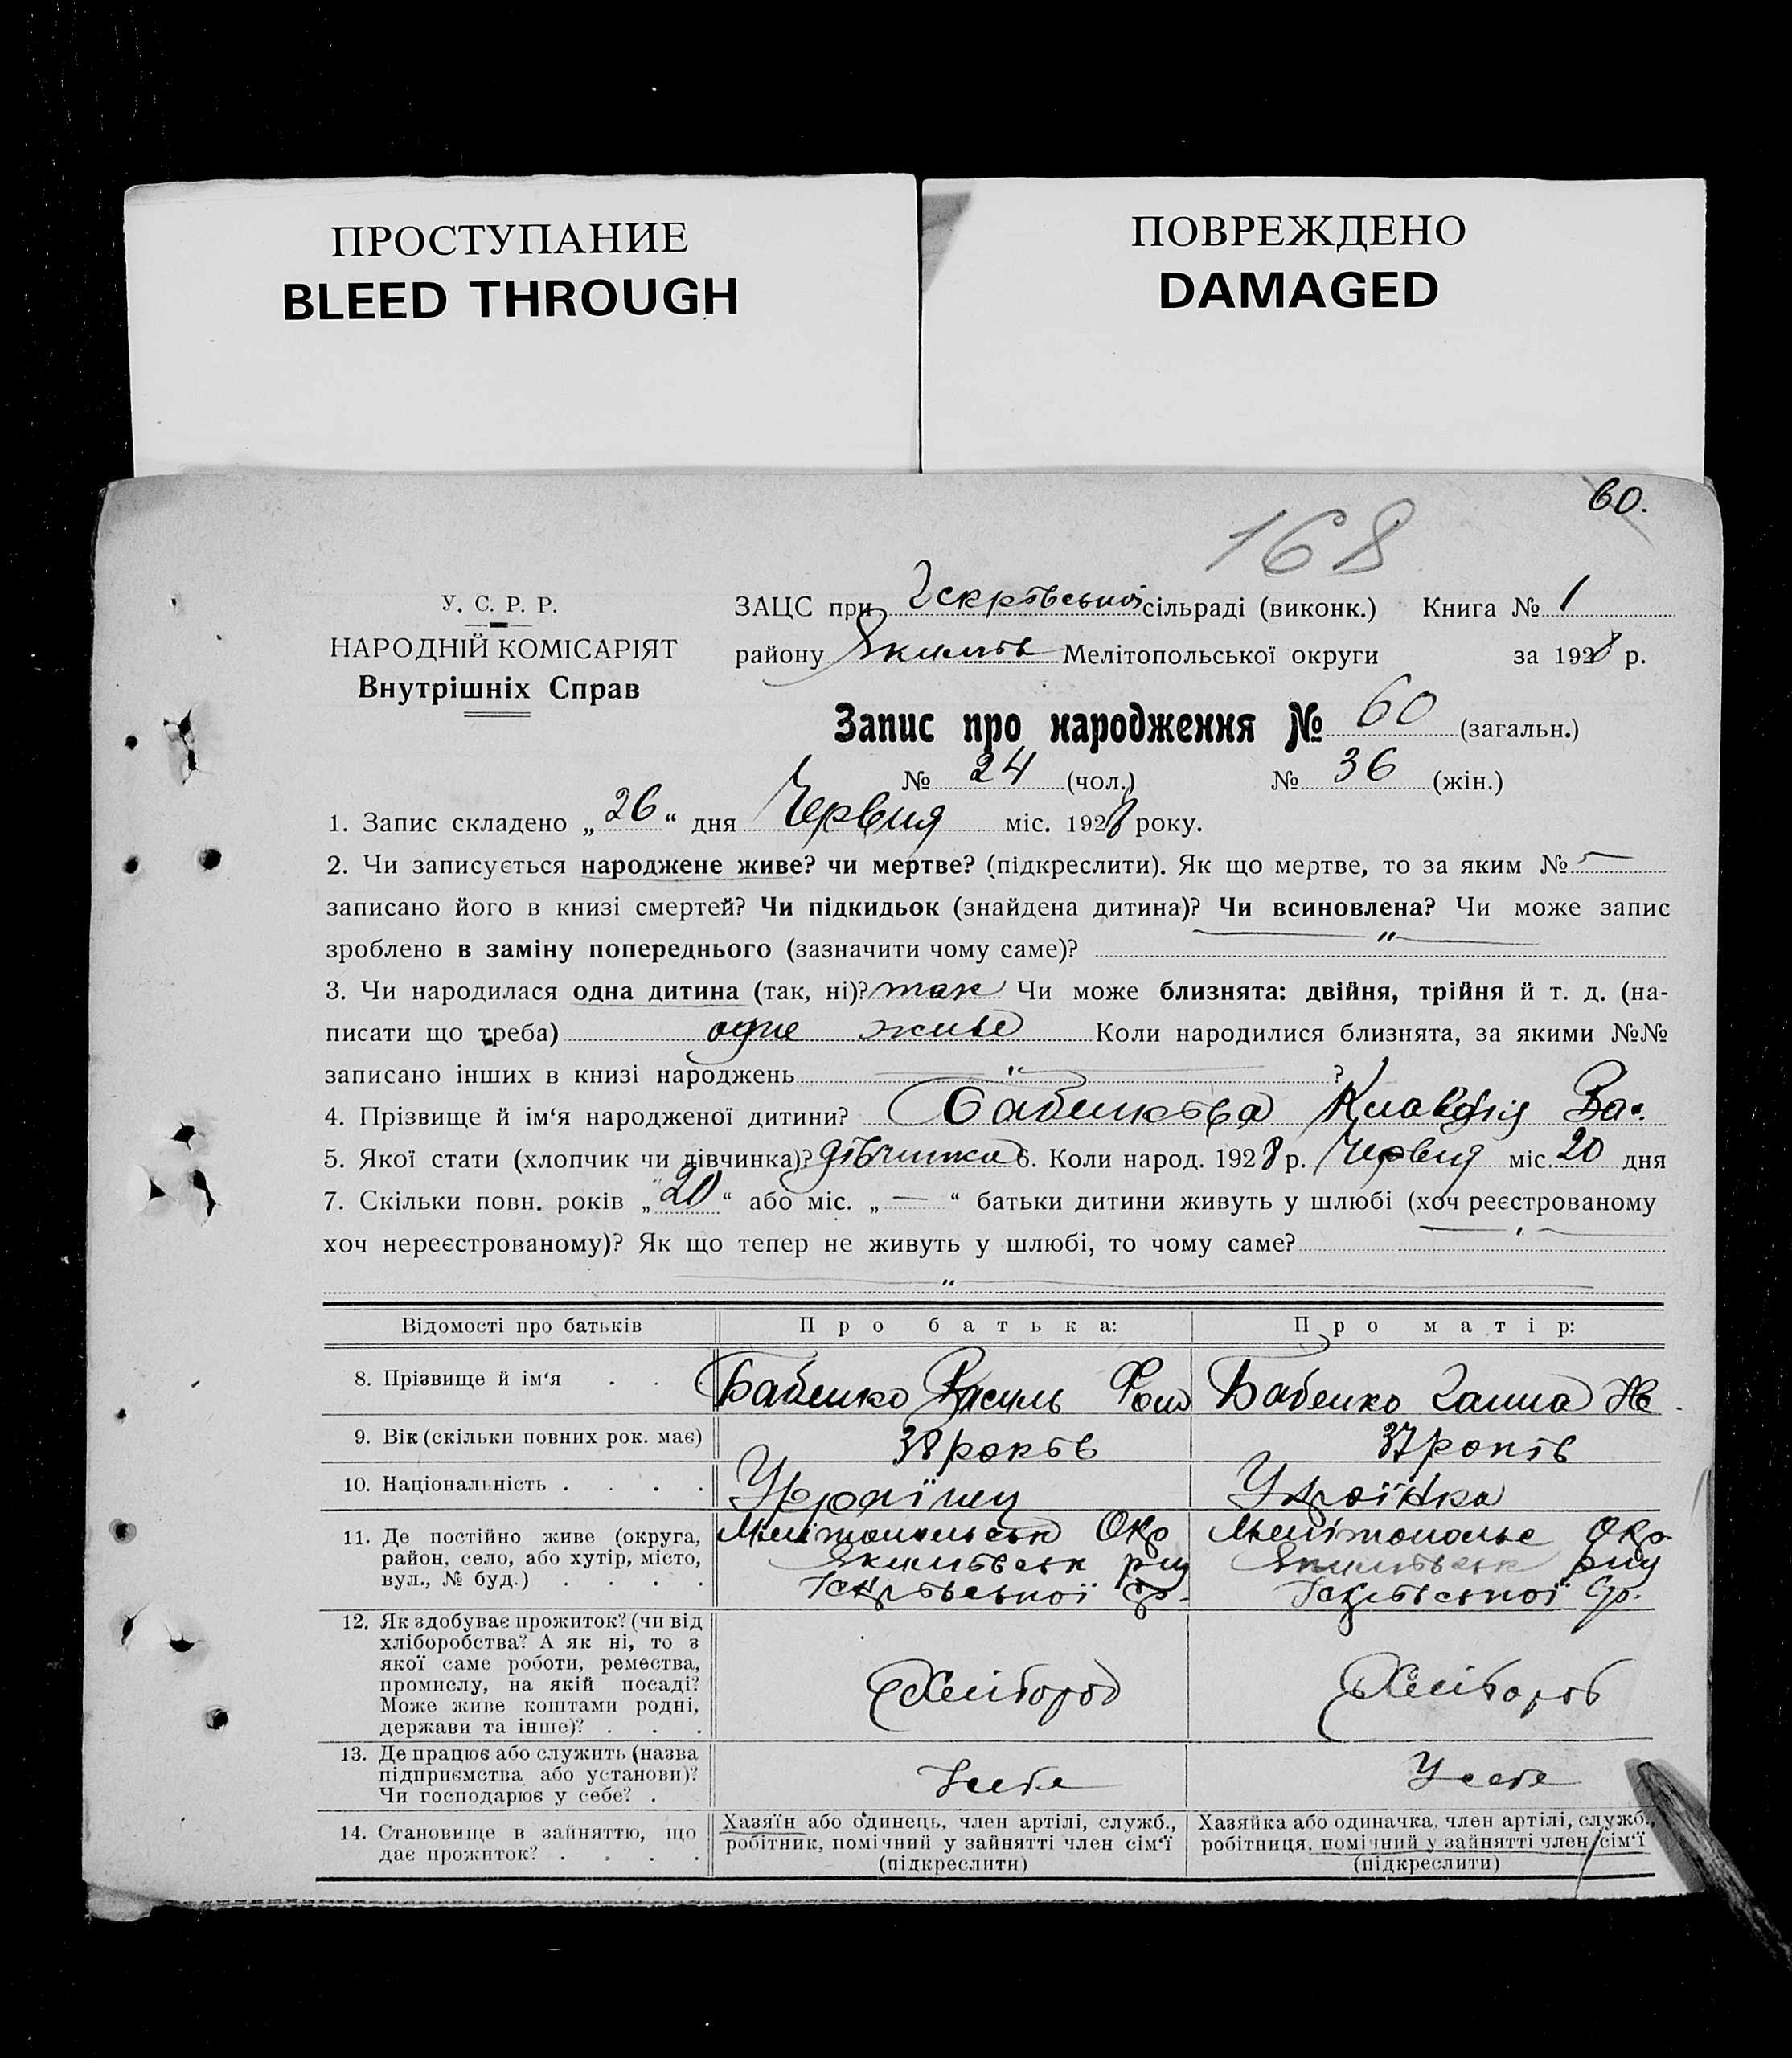 ПРОСТУПАНИЕ
BLEED THROUGH
ПОВРЕЖДЕНО
DAMAGED
60.
168
У. С. Р. Р.
НАРОДНІЙ КОМІСАРІЯТ
Внутрішніх Справ
ЗАЦС при сільраді (виконк.) Книга № 1
району Якимів Мелітопольської округи за 1928 р.
Запис про народження № 60 (загальн.)
№ 24 (чол.) № 36 (жін.)
1. Запис складено „26“ дня Червня міс. 1928 року.
2. Чи записується народжене живе? чи мертве? (підкреслити). Як що мертве, то за яким № —
записано його в книзі смертей? Чи підкидьок (знайдена дитина)? Чи всиновлена? Чи може запис
зроблено в заміну попереднього (зазначити чому саме)? — „ —
3. Чи народилася одна дитина (так, ні)? так Чи може близнята: двійня, трійня й т. д. (на-
писати що треба) одне живе Коли народилися близнята, за якими №№
записано інших в книзі народжень — „ — ?
4. Прізвище й ім‘я народженої дитини? Бабенкова Клавдія Вас.
5. Якої стати (хлопчик чи дівчинка)? дівчинка 6. Коли народ. 1928 р. Червня міс. 20 дня
7. Скільки повн. років „20“ або міс. „—“ батьки дитини живуть у шлюбі (хоч реєстрованому
хоч нереєстрованому)? Як що тепер не живуть у шлюбі, то чому саме?
— „ —
Відомості про батьків Про батька: Про матір:
8. Прізвище й ім‘я . . . Бабенко Василь Бабенко Ганна
9. Вік (скільки повних рок. має) 38 років 37 років
10. Національність . . . . Українец Українка
11. Де постійно живе (округа, район, село, або хутір, місто, вул., № буд.) . . . .
Мелітопольськ Окр
Якимівськ рну
Мелітопольс Окр.
Якимівськ рну
12. Як здобуває прожиток? (чи від хліборобства? А як ні, то з якої саме роботи, ремества, промислу, на якій посаді? Може живе коштами родні, держави та інше)? . . .
Хлібороб
Хлібороб
13. Де працює або служить (назва підприємства або установи)? Чи господарює у себе? .
У себе
У себе
14. Становище в зайняттю, що дає прожиток? . . . .
Хазяїн або одинець, член артілі, служб., робітник, помічний у зайнятті член сім‘ї (підкреслити)
Хазяйка або одиначка, член артілі, служб., робітниця, помічний у зайнятті член сім‘ї (підкреслити)